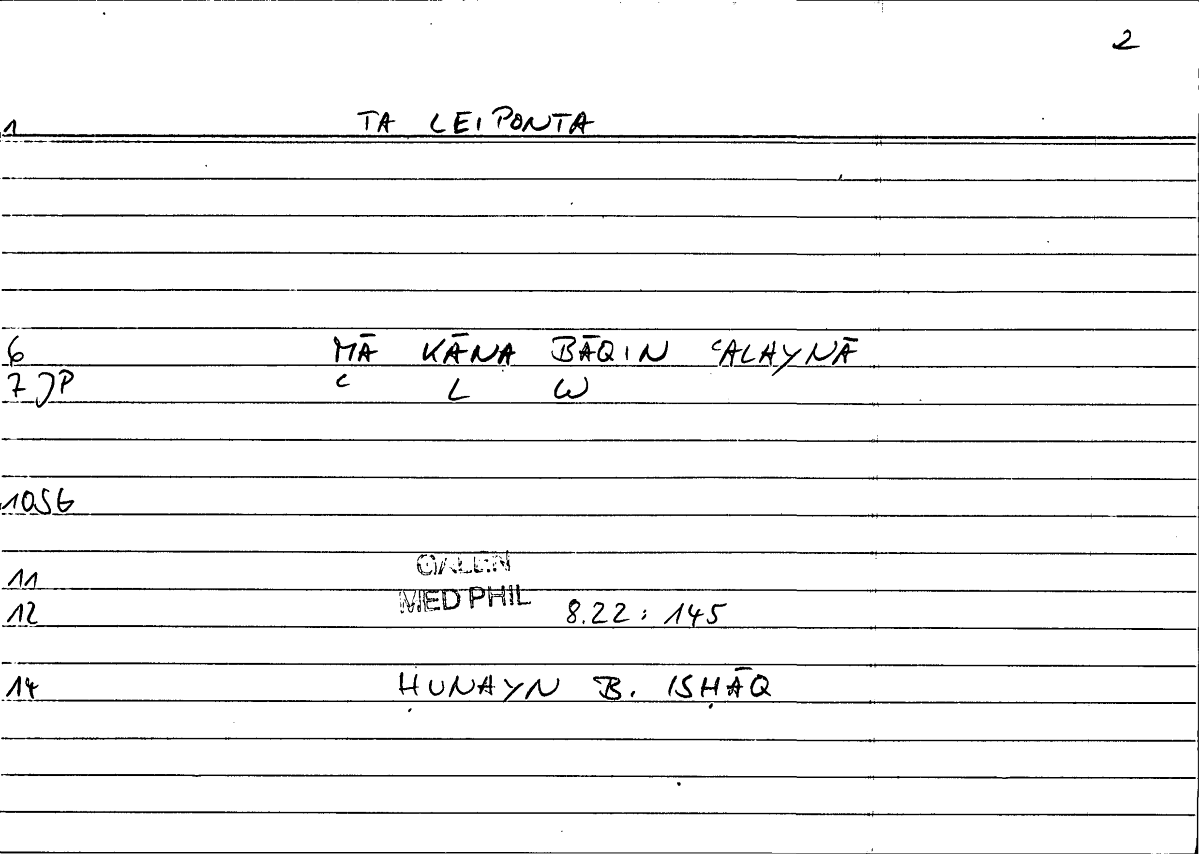 2
1 TA LEIPONTA
6 MĀ KĀNA BĀQIN ʿALAYNĀ
7 JP ʿ L W
10SG
11 GALEN
12 MED PHIL 8.22 : 145
14 ḤUNAYN B. ISḤĀQ